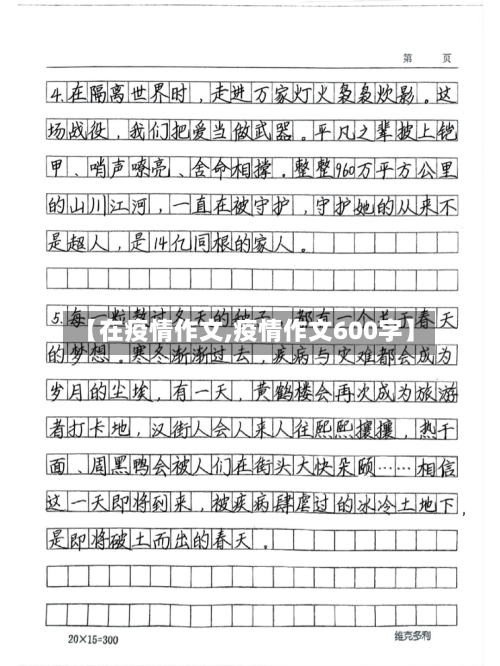 第 页
4.在隔离世界时，走进万家灯火袅袅炊影。这
场战役，我们把爱当做武器。平凡之辈披上铠
甲、哨声嘹亮、舍命相撑。整整960万平方公里
的山川江河，一直在被守护，守护她的从来不
是超人，是14亿同根的家人。
5.每一粒熬过冬天的种子，都有一个关于春天
【在疫情作文,疫情作文600字】
的梦想。寒冬渐渐过去，疾病与灾难都会成为
岁月的尘埃，有一天，黄鹤楼会再次成为旅游
者打卡地，汉街人会人来人往熙熙攘攘，热干
面、周黑鸭会被人们在街头大快朵颐……相信
这一天即将到来，被疾病肆虐过的冰冷土地下，
是即将破土而出的春天。
20×15=300
维克多利